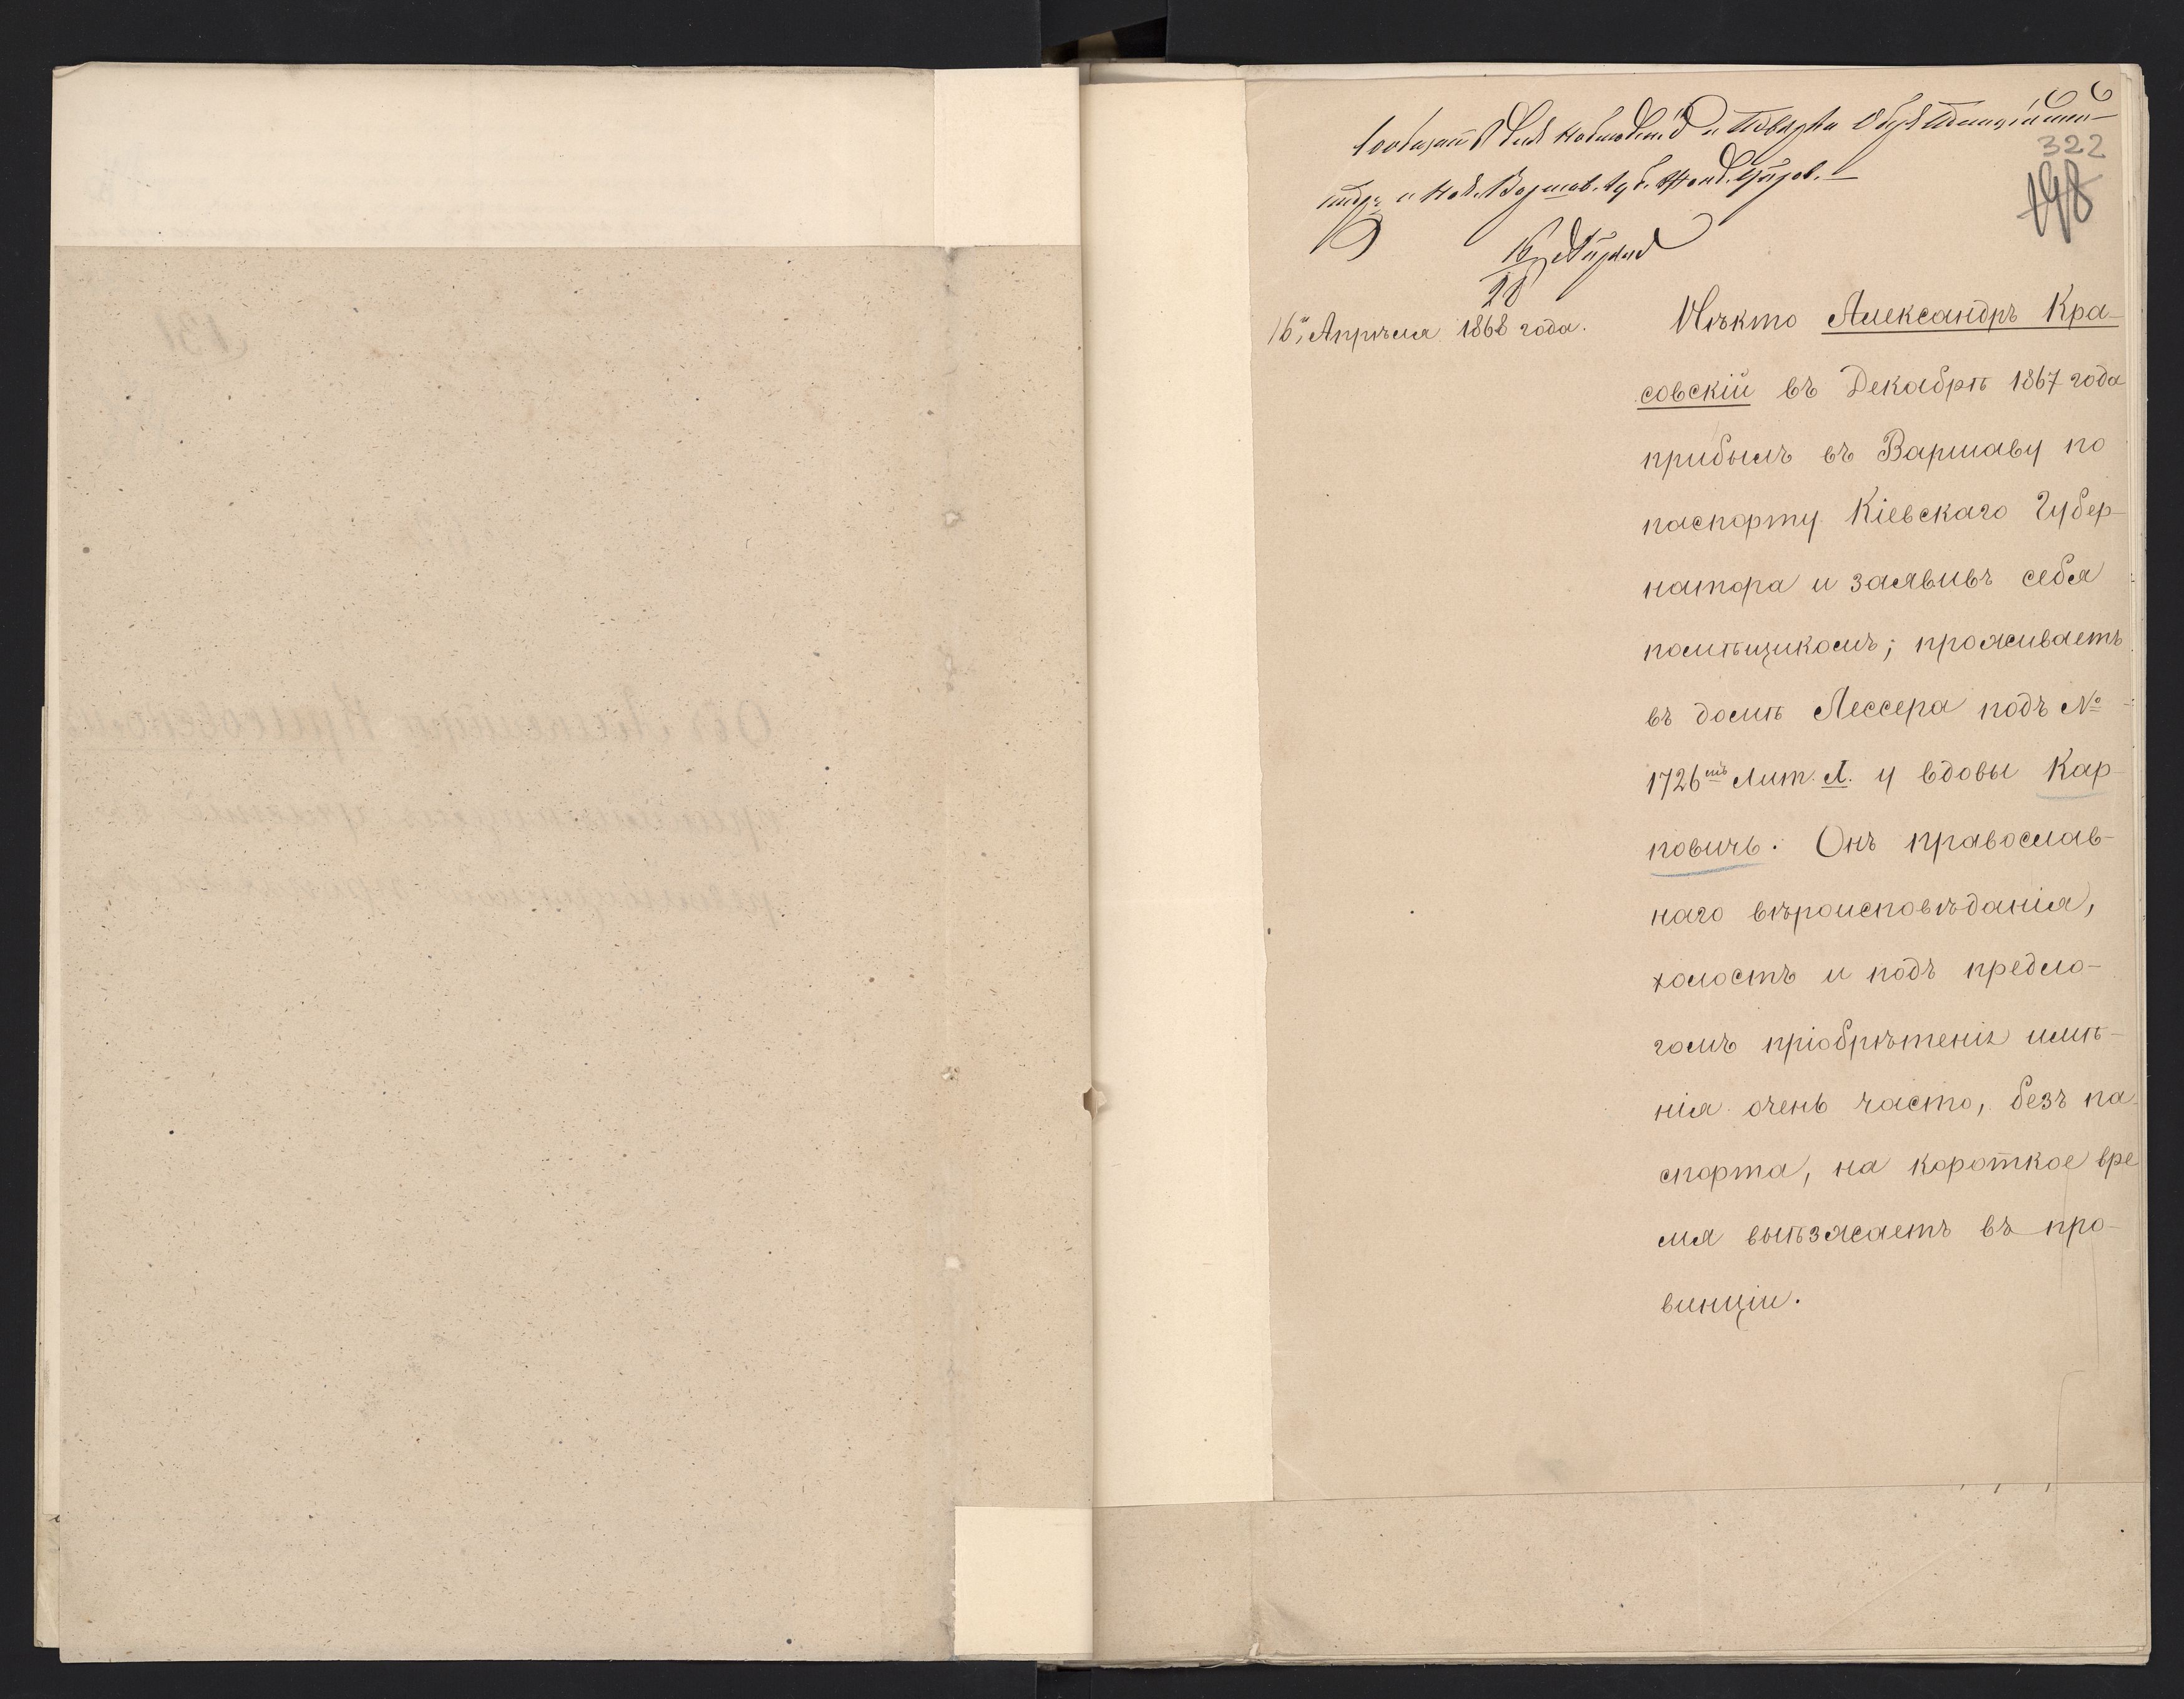 322
198
16 Апрѣля
28
16го Апрѣля 1868 года.
Нѣкто Александръ Кра-
совскій въ Декабрѣ 1867 года
прибылъ въ Варшаву по
паспорту Кіевскаго Губер-
натора и заявивъ себя
помѣщикомъ; проживаетъ
въ домѣ Лессера подъ №
1726мъ Лит. Л. у вдовы Кар-
повичь. Онъ православ-
наго вѣроисповѣданія,
холостъ и подъ предло-
гомъ пріобрѣтенія имѣ-
нія очень часто, безъ па-
спорта, на короткое вре
мя выѣзжаетъ въ про-
винціи.